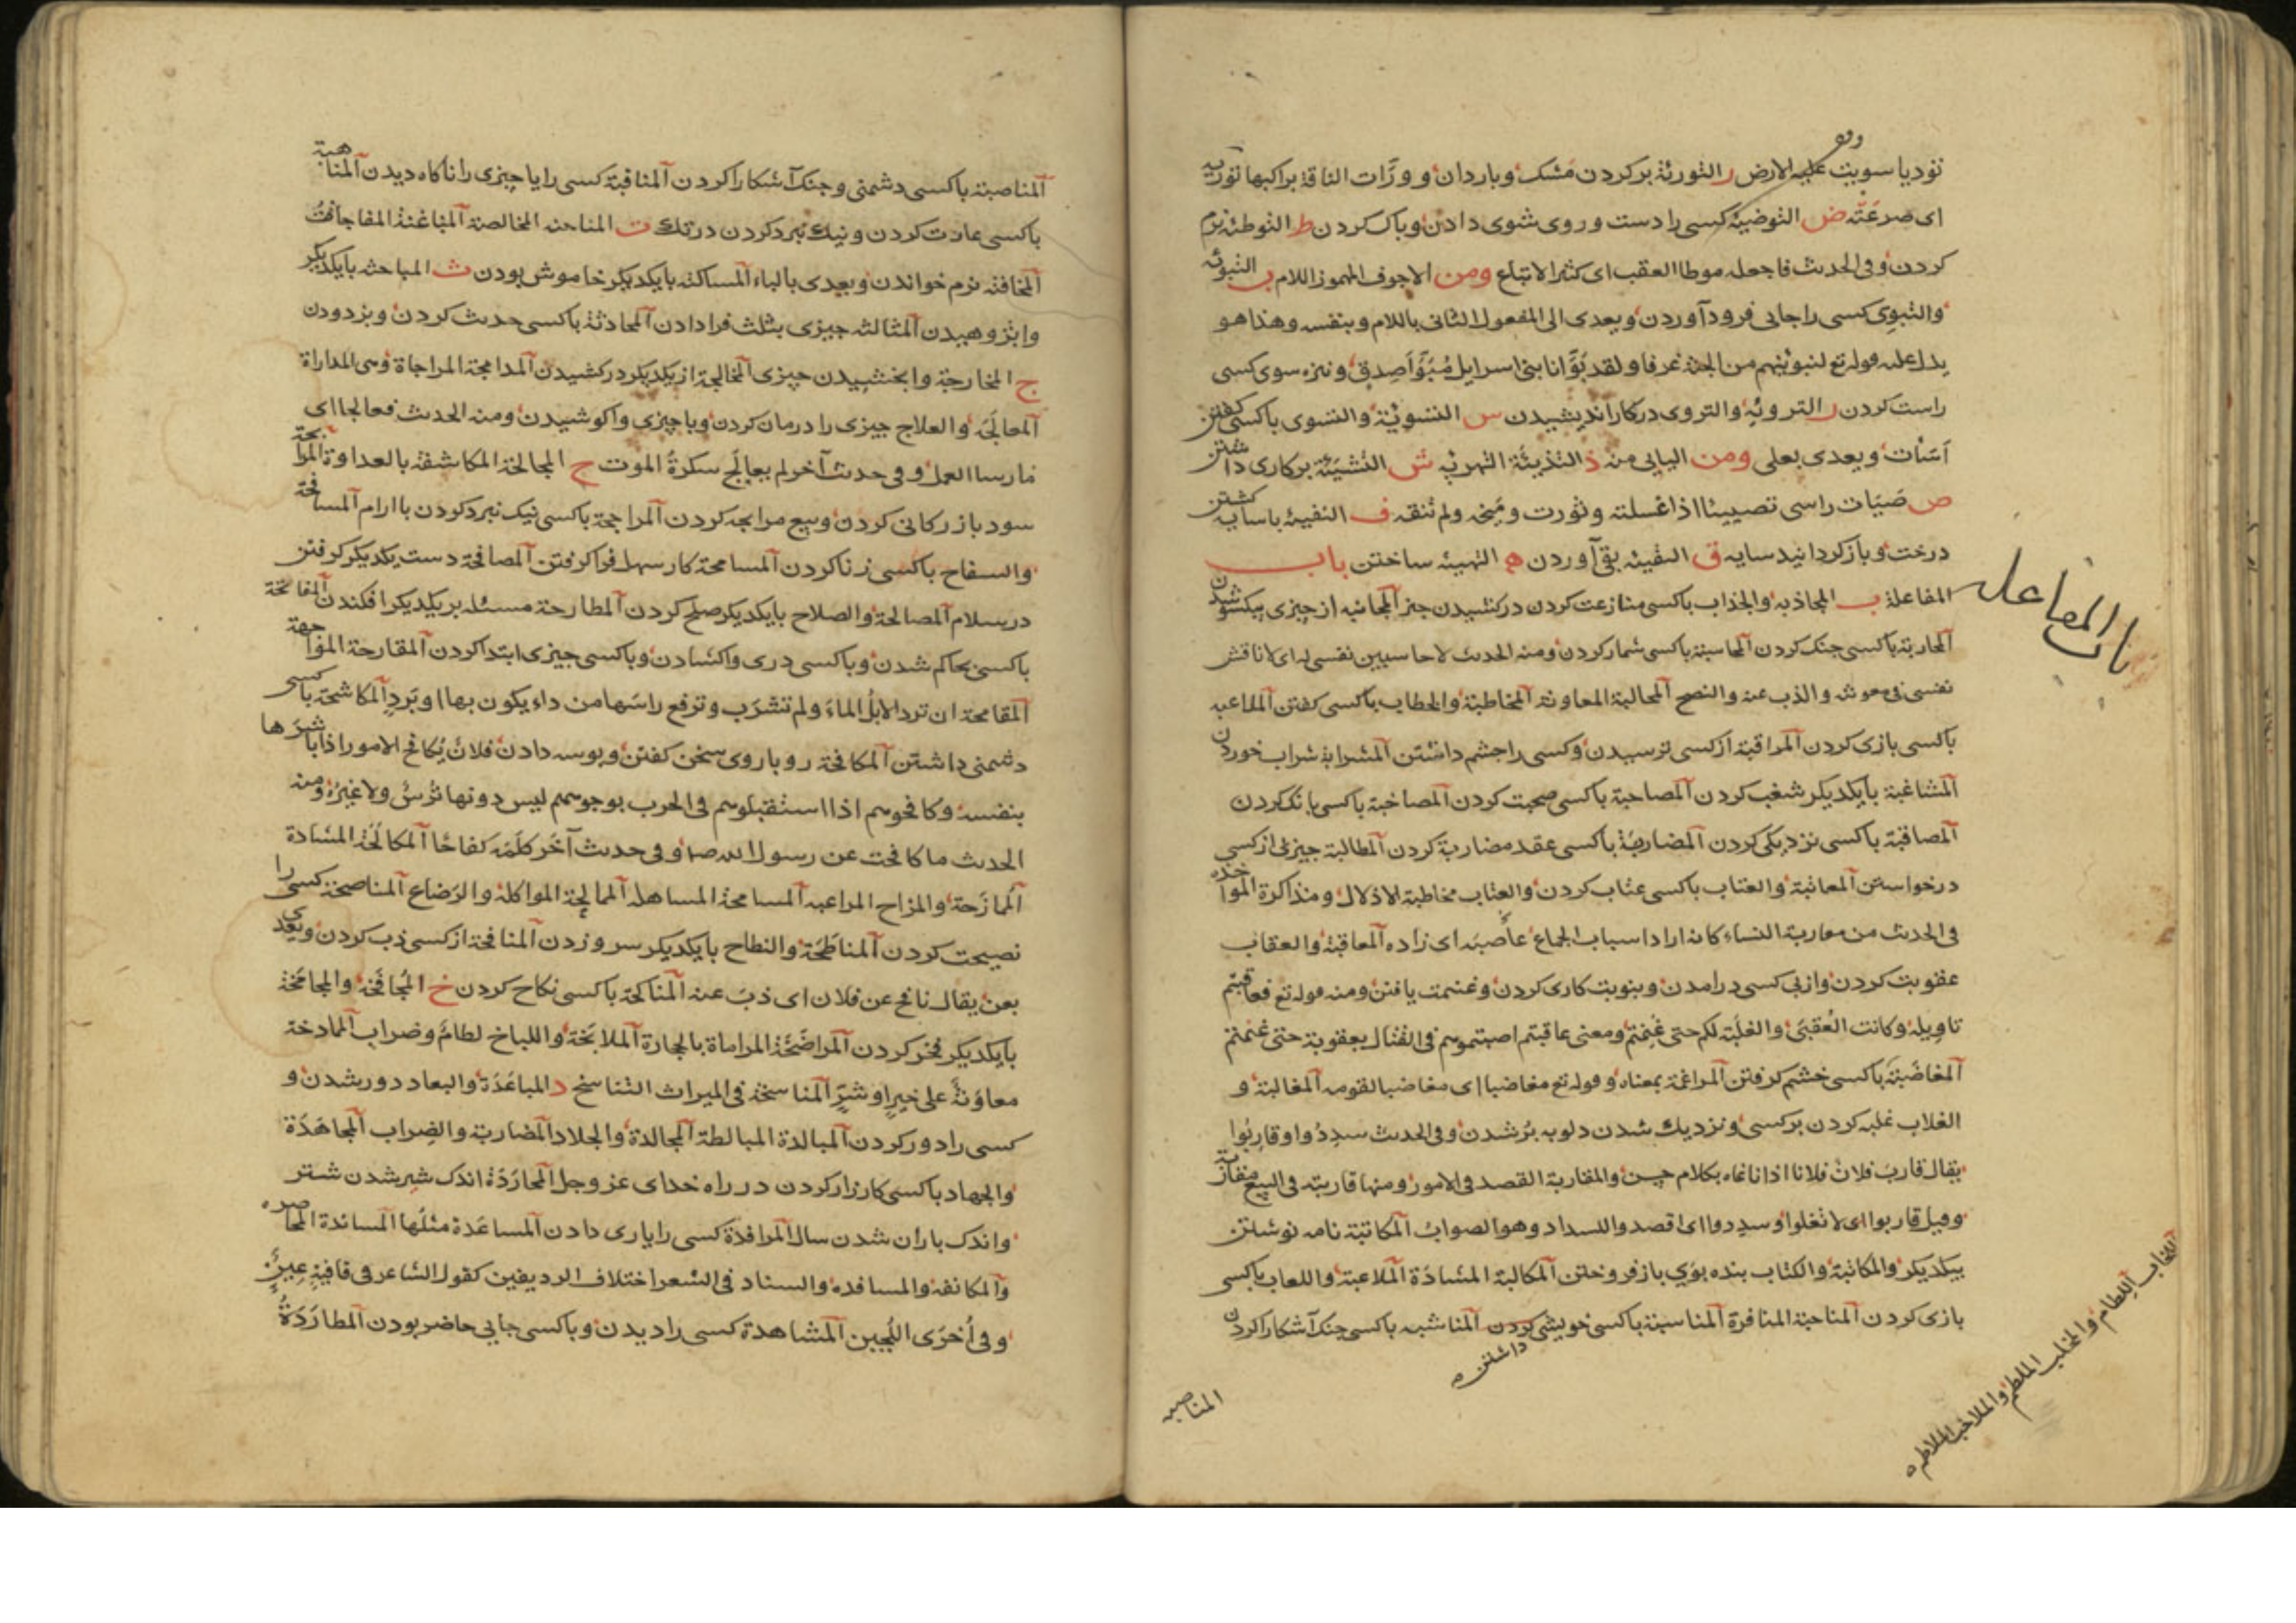 تؤديا سويت عليه الارض ر التورئة بر كردن مشك وباردان و ورّات الناقة براكبها تورية
اى صرعته ض التوضية كسى را دست و روى شوى دادن وپاك كردن ط التوطئة نرم
كردن وفى الحدث فاجعله موطا العقب اى كثير الاتباع ومن الاجوف المهموز اللام ب التبوئه
والتبوى كسى را جايى فرود آوردن ويعدى الى المفعول الثانى باللام وبنفسه وهذا هو
يدل عليه قوله تع لنبوئنهم من الجنة غرفا ولقد بوّأنا بنى اسرايل مبوّأ صدق ونيزه سوى كسى
راست كردن ر التروئة والتروى در كار انديشيدن س التسوئة والتسوى باكسى گفتن
اسات ويعدى بعلى ومن اليايى منه ذ التذيئة التهرئه ش التشيئة بر كارى داشتن
ص صيّات راسى تصييئا اذا غسلته وثورت وسخه ولم تنقه ف التفيية باسايه گشتن
درخت وبازكردانيد سايه ق التقيئه بقى آوردن ه التهيئه ساختن باب
المفاعلة ب المجاذبة والجذاب باكسى منازعت كردن دركشيدن چيز المجانبه از چيزى بيكسو شدن
باب المفاعله
المحاربة باكسى جنك كردن المحاسبة باكسى شمار كردن ومنه الحدث لا حاسبين نفسى له اى لاناقش
نفسى فى معوشه والذب عنه والنصح المحالبة المعاونة المخاطبة والخطاب باكسى كفتن الملاعبه
باكسى بازى كردن المراقبة از كسى ترسيدن وكسى را چشم داشتن المشرابة شراب خوردن
المشاغبة بايكديكر شغب كردن المصاحبة باكسى صحبت كردن المصاخبة باكسى بانك كردن
المصاقبة باكسى نزديكى كردن المضاربة باكسى عقد مضاربة كردن المطالبة چيزى از كسى
درخواستن المعاتبة والعتاب باكسى عتاب كردن والعتاب مخاطبة الاذلال ومذاكرة الموا خذه
فى الحدث من معاربة النساء كانه اراد اسباب الجماع عاصبه اى زاده المعاقبة والعقاب
عقوبت كردن وازپى كسى درامدن وبنوبت كارى كردن وغنيمت يافتن ومنه قوله تع فعاقبتم
تاويله وكانت العقبى والغلبة لكم حتى غنمتم ومعنى عاقبتم اصبتموهم فى القتال بعقوبة حتى غنمتم
المغاضبة باكسى خشم كرفتن المراغمة بمعناه وقوله تع مغاضبا اى مغاضبا لقومه المغالبة و
الغلاب غلبه كردن بر كسى ونزديك شدن دلو به پر شدن وفى الحدث سددوا وقاربوا
يقال قارب فلان فلانا اذا ناغاه بكلام حسن والمقاربة القصد فى الامور ومنها قاربته فى البيع مقاربة
وقيل قاربوا اى لا تغلوا وسددوا اى اقصدوا السداد وهو الصواب المكاتبة نامه نوشتن
بيكديكر والمكاتبة والكتاب بنده بوى باز فروختن المكالبة المشادّة الملاعبة واللعاب باكسى
بازى كردن المناحبة المنافرة المناسبة باكسى خويشى كردن داشتن المناشبه باكسى جنك آشكارا كردن
اللخاب اللطام والملخب الملطم والملاخب الملاطم
المناصبه
المناصبة باكسى دشمنى وجنك آشكارا كردن المناقبة كسى را يا چيزى را ناكاه ديدن المناهبة
باكسى غارت كردن ونيك نبرد كردن در تك ت المناحته المخالصة المباغتة المفاجاة
المخافتة نرم خواندن ويعدى بالباء المساكتة بايكديكر خاموش بودن ث المباحثه بايكديكر
واپژوهيدن المثالثه چيزى بثلث فرا دادن المحادثة باكسى حدث كردن وبزدودن
ج المخارجة وابخشيدن چيزى المخالجة از يكديكر دركشيدن المدامجة المراجاة وهى المداراة
المعالجة والعلاج چيزى را درمان كردن وباچيزى واكوشيدن ومنه الحدث فعالجا اى
مارسا العمل وفى حدث آخر لم يعالج سكرة الموت ح المجالحة المكاشفة بالعداوة المرابحة
سود بازركانى كردن وبيع مرابحه كردن المراجحة باكسى نيك نبرد كردن باارام المسافحة
والسفاح باكسى زنا كردن المسامحة كار سهل فرا كرفتن المصافحة دست يكديكر كرفتن
در سلام المصالحة والصلاح بايكديكر صلح كردن المطارحة مسئله بر يكديكر افكندن المفاتحة
باكسى بحاكم شدن وباكسى درى واكشادن وباكسى چيزى ابتدا كردن المقارحة المواجهة
المقامحة ان ترد الابل الماء ولم تشرب وترفع راسها من داء يكون بها او برد المكاشحة باكسى
دشمنى داشتن المكافحة روباروى سخن كفتن وبوسه دادن فلان يكافح الامور اذا باشرها
بنفسه وكافحوهم اذا استقبلوهم فى الحرب بوجوههم ليس دونها ترس ولا غيره ومنه
الحدث ما كافحت عن رسول الله صم وفى حدث آخر كلمه كفاحا المكالحة المشادة
الممازحة والمزاح المراعبه المسامحة المساهلة الممالحة المواكلة والرضاع المناصحة كسى را
نصيحت كردن المناطحة والنطاح بايكديكر سروزدن المنافحة از كسى ذب كردن ويعدى
بعن يقال نافح عن فلان اى ذب عنه المناكحة باكسى نكاح كردن خ المجافخة والمجامخة
بايكديكر فخر كردن المراضخة المراماة بالحجارة الملابخة واللباخ لطام وضراب المادخة
معاونة على خير او شر المناسخة فى الميراث التناسخ د المباعدة والبعاد دور شدن و
كسى را دور كردن المبالدة المبالطة المجالدة والجلاد المضاربة والضراب المجاهدة
والجهاد باكسى كارزار كردن در راه خداى عز وجل المحاردة اندك شير شدن شتر
واندك باران شدن سال المرافدة كسى را يارى دادن المساعدة مثلها المساندة المحاصره
والمكانفة والمسافده والسناد فى الشعر اختلاف الرديفين كقول الشاعر فى قافية عين
وفى اخرى اللجين المشاهدة كسى را ديدن وباكسى جايى حاضر بودن المطاردة